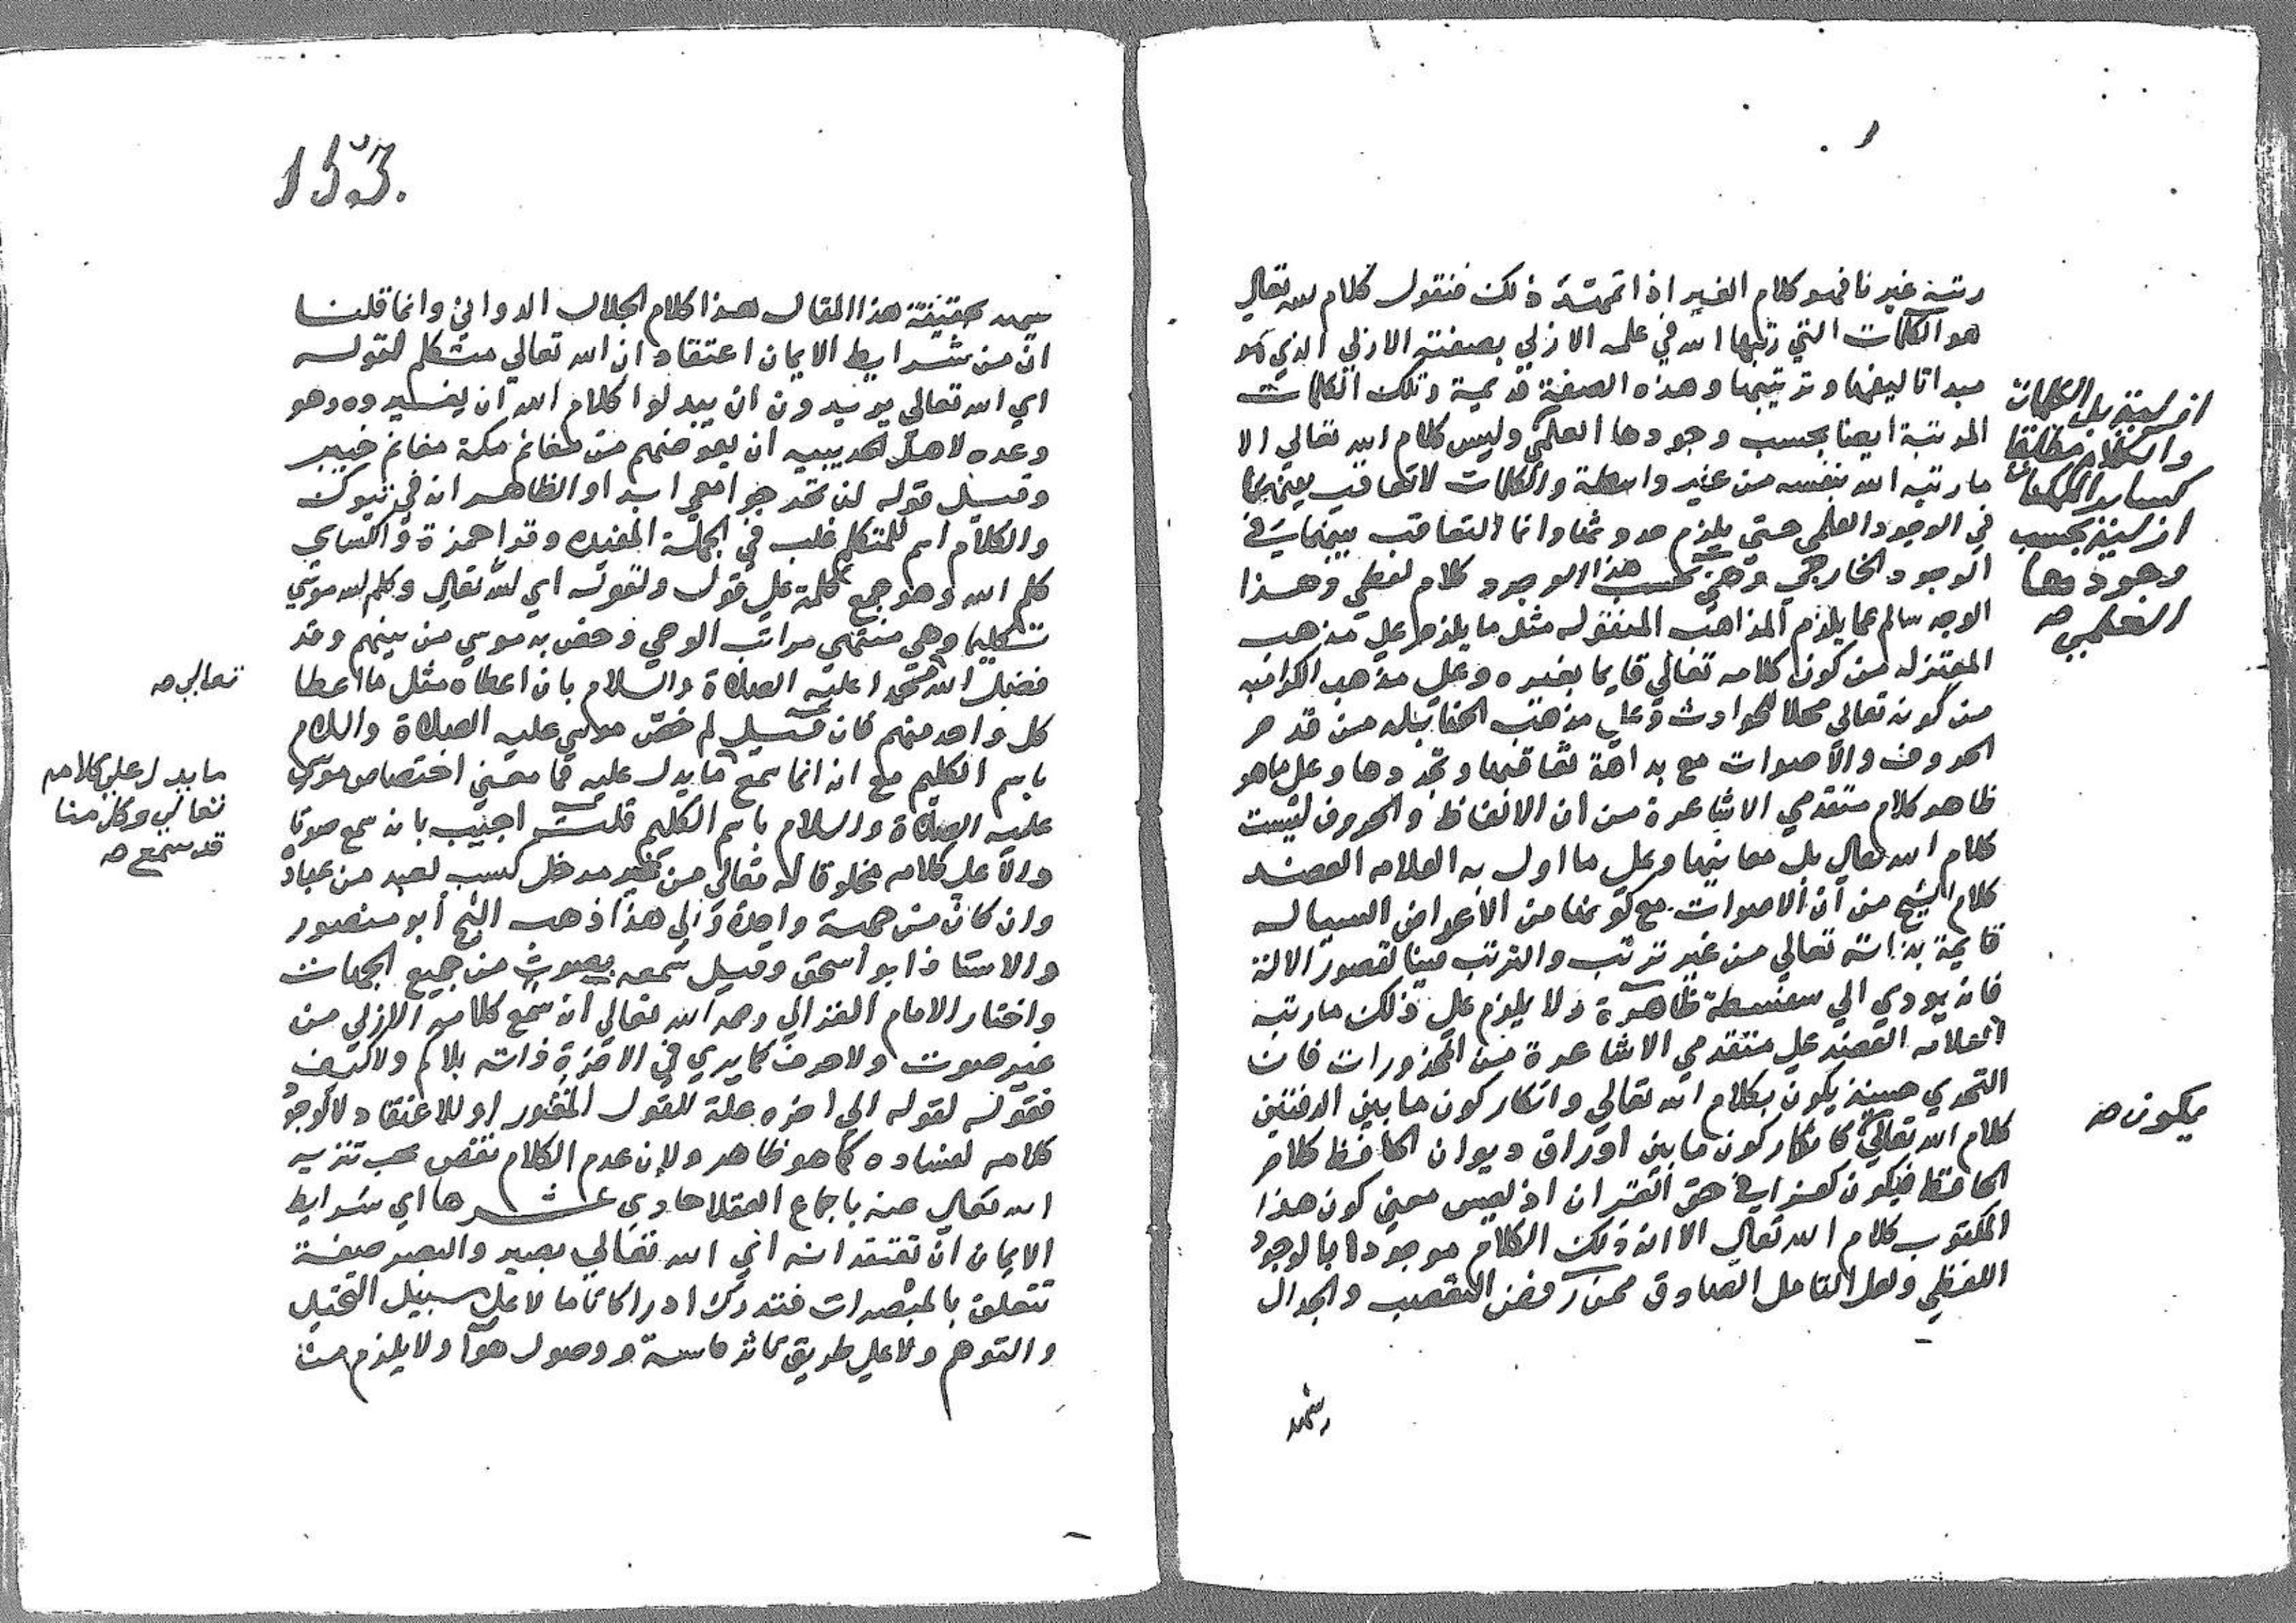 رتبه غيرنا فهو كلام الغير اذا تمهد ذلك فنقول كلام الله تعالي
هو الكلمات التي رتبها الله في علمه الازلي بصفته الازلي الذي هو
مبدا تاليفها وترتيبها وهذه الصفة قديمة وتلك الكلمات
المرتبة ايضا بحسب وجودها العلمي وليس كلام الله تعالي الا
ما رتبه الله بنفسه من غير واسطة والكلمات لا تعاقب بينهما
في الوجود العلمي حتي يلزم حدوثها وانما التعاقب بينهما في
الوجود الخارجي وهي بحسب هذا الوجود كلام لفظي وهذا
الوجه سالم عما يلزم المذاهب المنقوله مثل ما يلزم علي مذهب
المعتزله من كون كلامه تعالي قايما بغيره وعلي مذهب الكراميه
من كونه تعالي محلا للحوادث وعلي مذهب الحنابله من قدم
الحروف والاصوات مع بداهة تعاقبها وتجددها وعلي ما هو
ظاهر كلام متقدمي الاشاعرة من ان الالفاظ والحروف ليست
كلام الله تعالي بل معانيها وعلي ما اول به العلامه العضد
كلام الشيخ من ان الاصوات مع كونها من الاعراض السياله
قايمة بذاته تعالي من غير ترتب والترتب فينا لقصور الالة
فانه يودي الي سفسطة ظاهرة ولا يلزم علي ذلك ما رتبه
العلامه العضد علي متقدمي الاشاعرة من المحذورات فان
التحدي حينئذ يكون بكلام الله تعالي وانكار كون ما بين الدفتين
كلام الله تعالي كانكار كون ما بين اوراق ديوان الحافظ كلام
الحافظ فيكون كفرا في حق القران اذ ليس معني كون هذا
المكتوب كلام الله تعالي الا ان ذلك الكلام موجودا بالوجود
اللفظي ولعل التامل الصادق ممن رفض التعصب والجدال
يشهد
ازلية بل الكلمات
والكلام مطلقا
كساير الممكنات
ازلية بحسب
وجودها
العلمي صح
يكون صح
153.
يشهد بحقيقة هذا المقال هذا كلام الجلال الدواني وانما قلنا
ان من شرايط الايمان اعتقاد ان الله تعالي متكلم لقوله
اي الله تعالي يريدون ان يبدلوا كلام الله ان يغيروه وهو
وعده لاهل الحديبيه ان يعوضهم من مغانم مكة مغانم خيبر
وقيل قوله لن تخرجوا معي ابدا والظاهر انه في تبوك
والكلام اسم للمتكلم غلب في الجملة المفيده وقرا حمزة والكساي
كلم الله وهو جمع كلمة علي قول ولقوله اي الله تعالي وكلم الله موسي
تكليما وهي منتهي مراتب الوحي وخص به موسي من بينهم وقد
فضل الله محمدا عليه الصلاة والسلام بان اعطاه مثل ما اعطا
كل واحد منهم فان قيل لم خص موسي عليه الصلاة والسلام
باسم الكليم مع انه انما سمع ما يدل عليه فما معني اختصاص موسي
عليه الصلاة والسلام باسم الكليم قلت اجيب بانه سمع صوتا
دالا علي كلامه مخلوقا له تعالي من غير مدخل كسب لعبد من عباده
وان كان من جهة واحدة والي هذا ذهب الشيخ ابو منصور
والاستاذ ابو اسحق وقيل سمعه بصوت من جميع الجهات
واختار الامام الغزالي رحمه الله تعالي انه سمع كلامه الازلي من
غير صوت ولا حرف كما يري في الاخرة ذاته بلا كم ولا كيف
فقوله لقوله الي اخره علة للقول المقدر او للاعتقاد لا لوجود
كلامه لفساده كما هو ظاهر ولان عدم الكلام نقص يجب تنزيه
الله تعالي عنه باجماع العقلا حادي عشرها اي شرايط
الايمان ان تعتقد انه اي الله تعالي بصير والبصر صفة
تتعلق بالمبصرات فتدرك ادراكا تاما لا علي سبيل التخيل
والتوهم ولا علي طريق تاثر حاسة ووصول هوا ولا يلزم من
تعالي صح
ما يدل علي كلامه
تعالي وكل منا
قد سمع صح